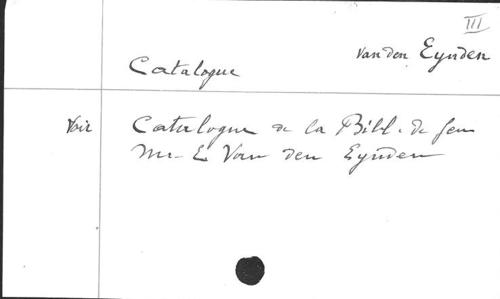 III
van den Eynden
Catalogue
Voir Catalogue de la Bibl. de feu
Mr E Van den Eynden